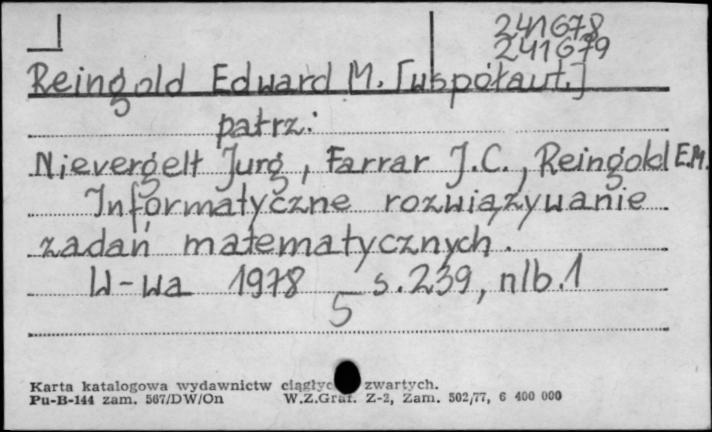 241678
241679
Reingold Edward M. [współaut.]
patrz:
Nievergelt Jurg, Farrar J.C., Reingold E.M.
Informatyczne rozwiązywanie
zadań matematycznych.
W-wa 1978 s.239, nlb.1
5
Karta katalogowa wydawnictw ciągłyc zwartych.
Pu-B-144 zam. 567/DW/On W.Z.Graf. Z-2, Zam. 502/77, 6 400 000